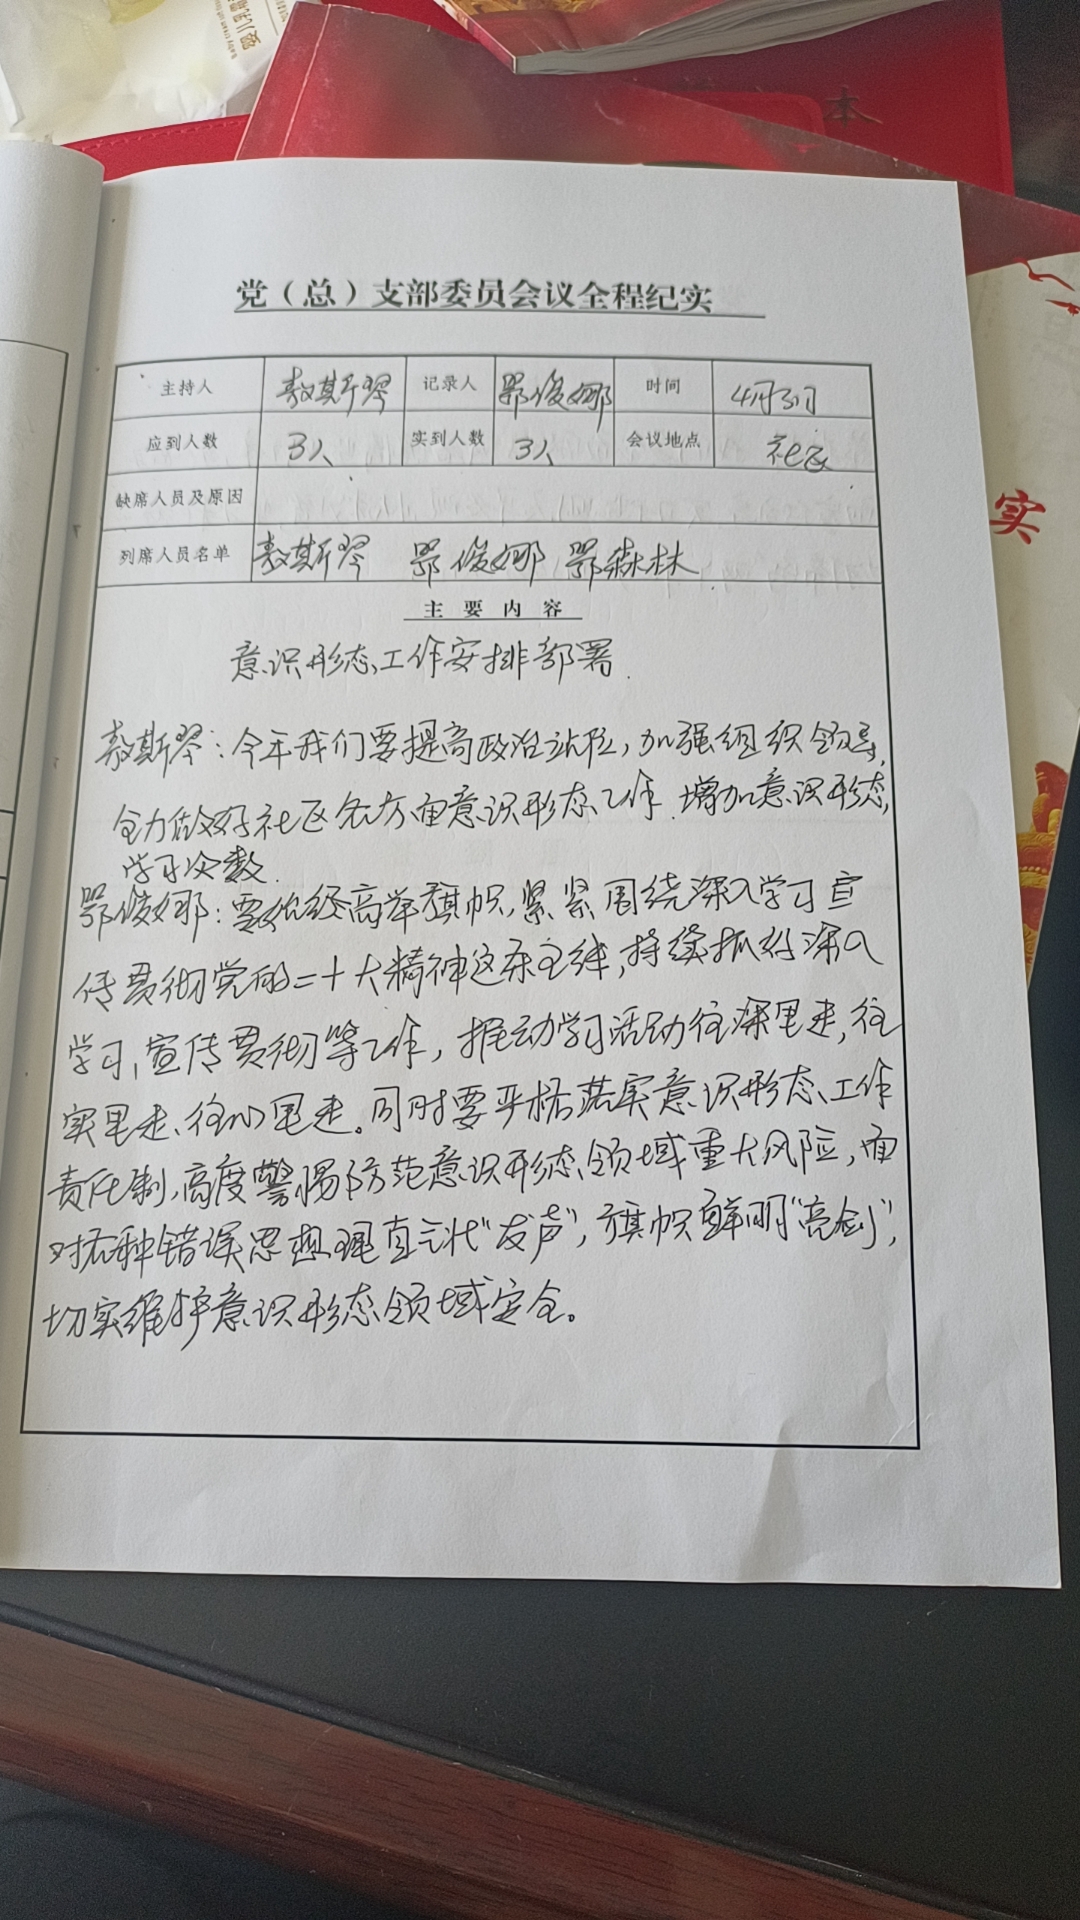 本
实
党（总）支部委员会议全程纪实
主持人 敖斯琴 记录人 鄂俊娜 时间 4月3日
应到人数 3人 实到人数 3人 会议地点 社区
缺席人员及原因
列席人员名单 敖斯琴 鄂俊娜 鄂森林
主要内容
意识形态工作安排部署.
敖斯琴：今年我们要提高政治站位，加强组织领导，
全力做好社区各方面意识形态工作.增加意识形态
学习次数.
鄂俊娜：要始终高举旗帜，紧紧围绕深入学习宣
传贯彻党的二十大精神这条主线，持续抓好深入
学习，宣传贯彻等工作，推动学习活动往深里走，往
实里走、往心里走。同时要严格落实意识形态工作
责任制，高度警惕防范意识形态领域重大风险，面
对各种错误思想理直气壮“发声”，旗帜鲜明“亮剑”，
切实维护意识形态领域安全。